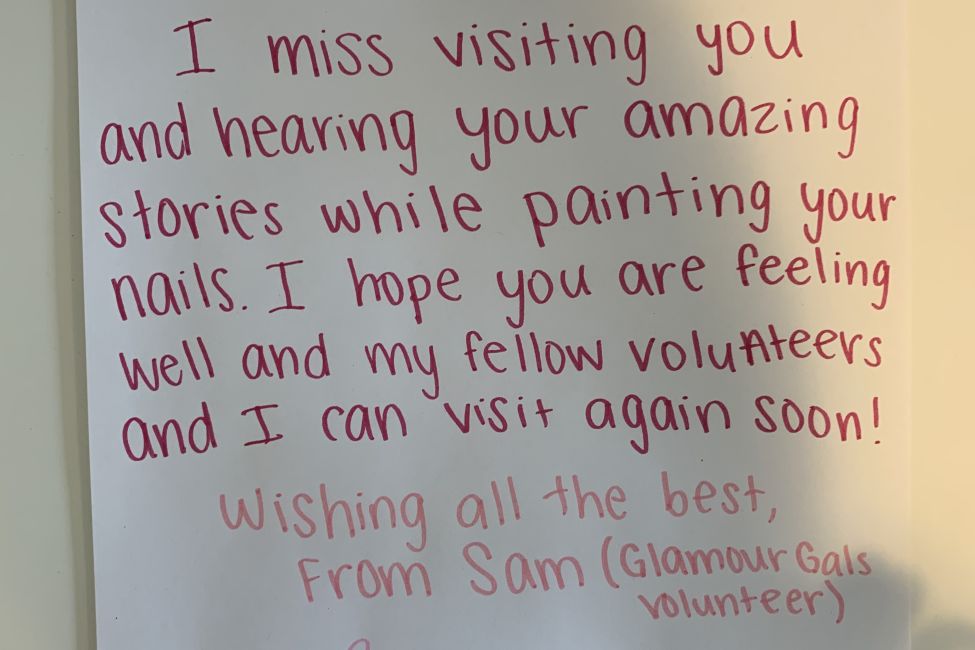 I miss visiting you
and hearing your amazing
stories while painting your
nails. I hope you are feeling
well and my fellow volunteers
and I can visit again soon!
Wishing all the best,
From Sam (Glamour Gals
volunteer)